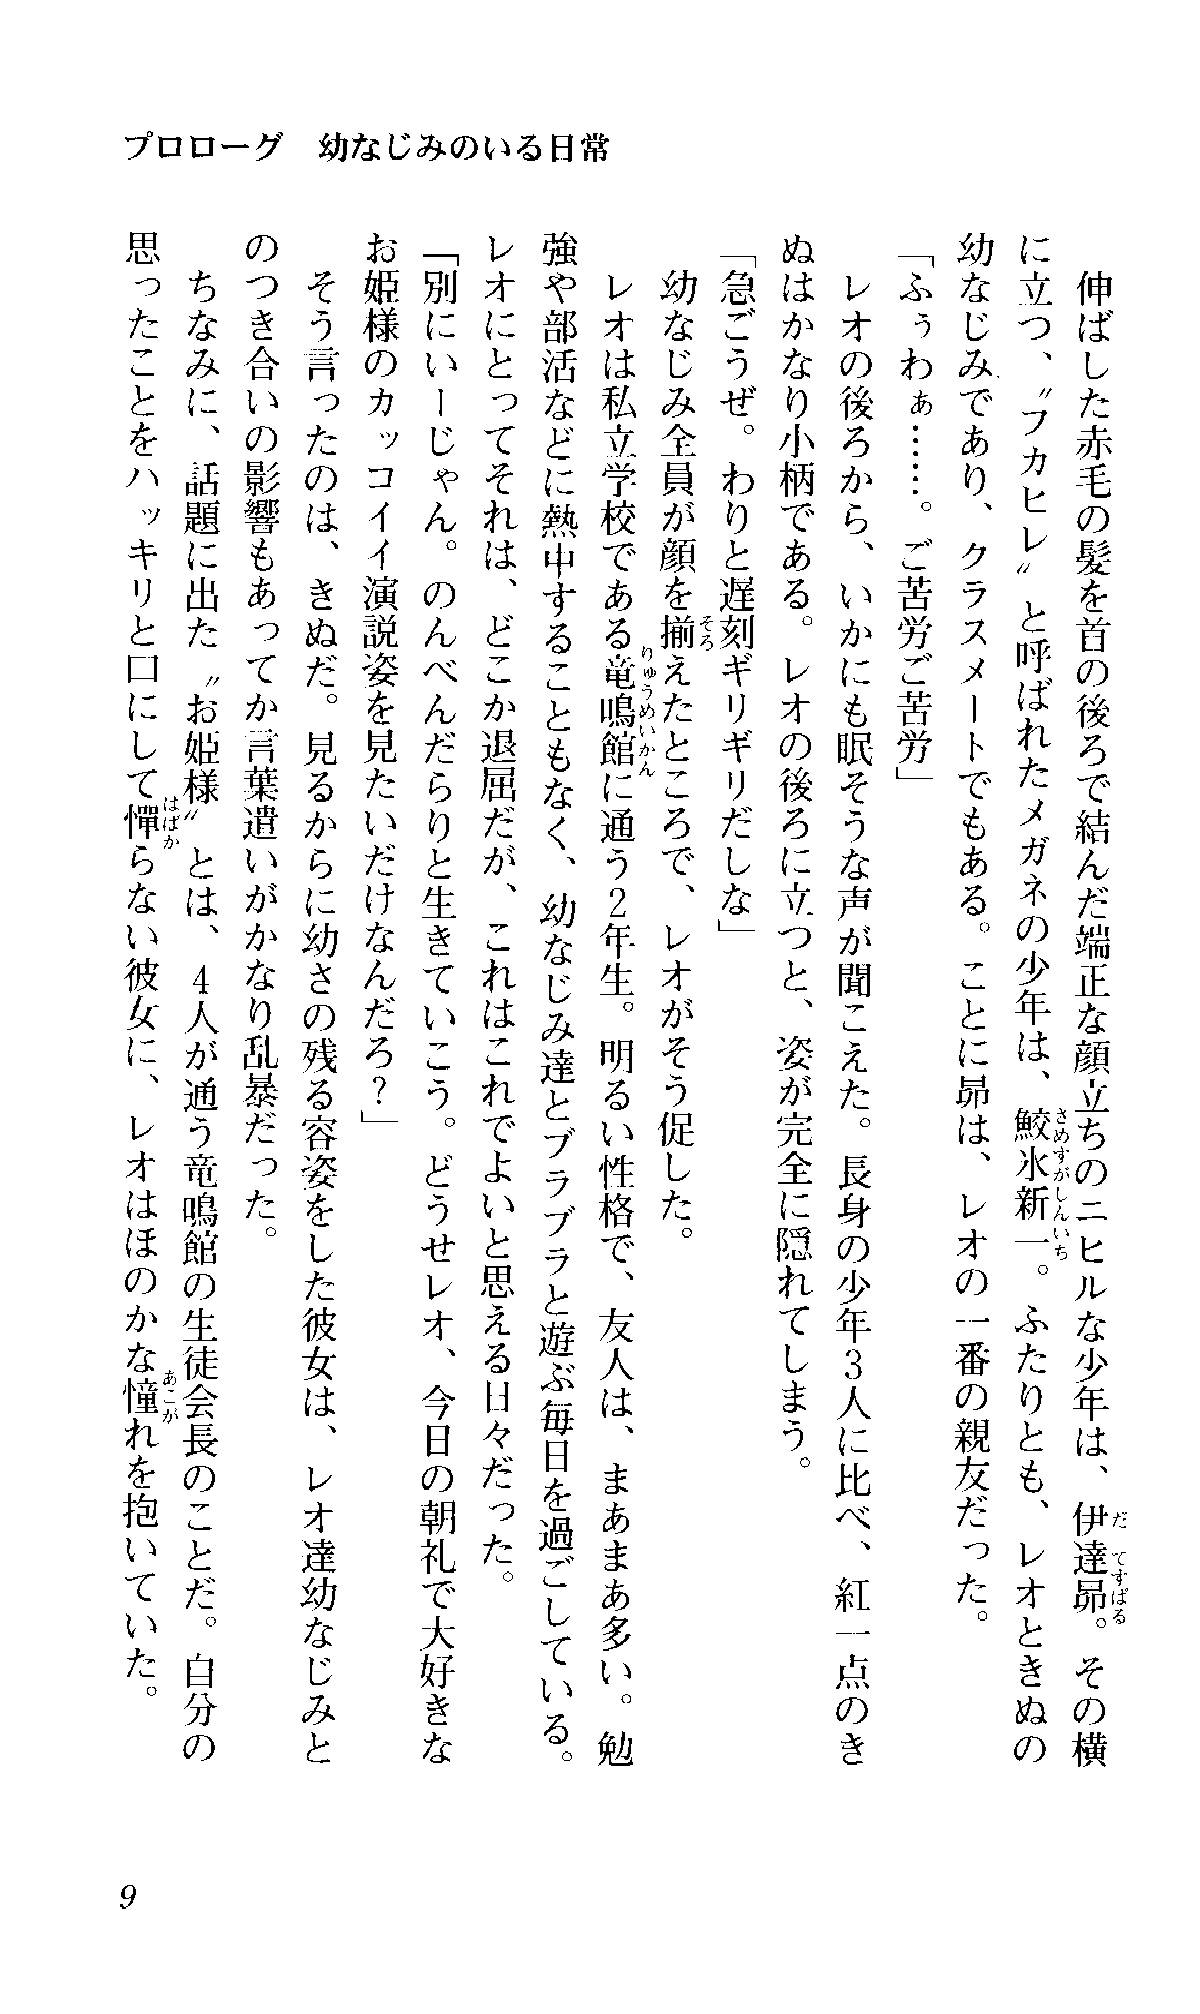 プロローグ　幼なじみのいる日常
　伸ばした赤毛の髪を首の後ろで結んだ端正な顔立ちのニヒルな少年は、伊達昴。その横
に立つ、〝フカヒレ〟と呼ばれたメガネの少年は、鮫氷新一。ふたりとも、レオときぬの
幼なじみであり、クラスメートでもある。ことに昴は、レオの一番の親友だった。
「ふぅわぁ……。ご苦労ご苦労」
　レオの後ろから、いかにも眠そうな声が聞こえた。長身の少年3人に比べ、紅一点のき
ぬはかなり小柄である。レオの後ろに立つと、姿が完全に隠れてしまう。
「急ごうぜ。わりと遅刻ギリギリだしな」
　幼なじみ全員が顔を揃えたところで、レオがそう促した。
　レオは私立学校である竜鳴館に通う2年生。明るい性格で、友人は、まあまあ多い。勉
強や部活などに熱中することもなく、幼なじみ達とブラブラと遊ぶ毎日を過ごしている。
レオにとってそれは、どこか退屈だが、これはこれでよいと思える日々だった。
「別にいーじゃん。のんべんだらりと生きていこう。どうせレオ、今日の朝礼で大好きな
お姫様のカッコイイ演説姿を見たいだけなんだろ？」
　そう言ったのは、きぬだ。見るからに幼さの残る容姿をした彼女は、レオ達幼なじみと
のつき合いの影響もあってか言葉遣いがかなり乱暴だった。
　ちなみに、話題に出た〝お姫様〟とは、4人が通う竜鳴館の生徒会長のことだ。自分の
思ったことをハッキリと口にして憚らない彼女に、レオはほのかな憧れを抱いていた。
9